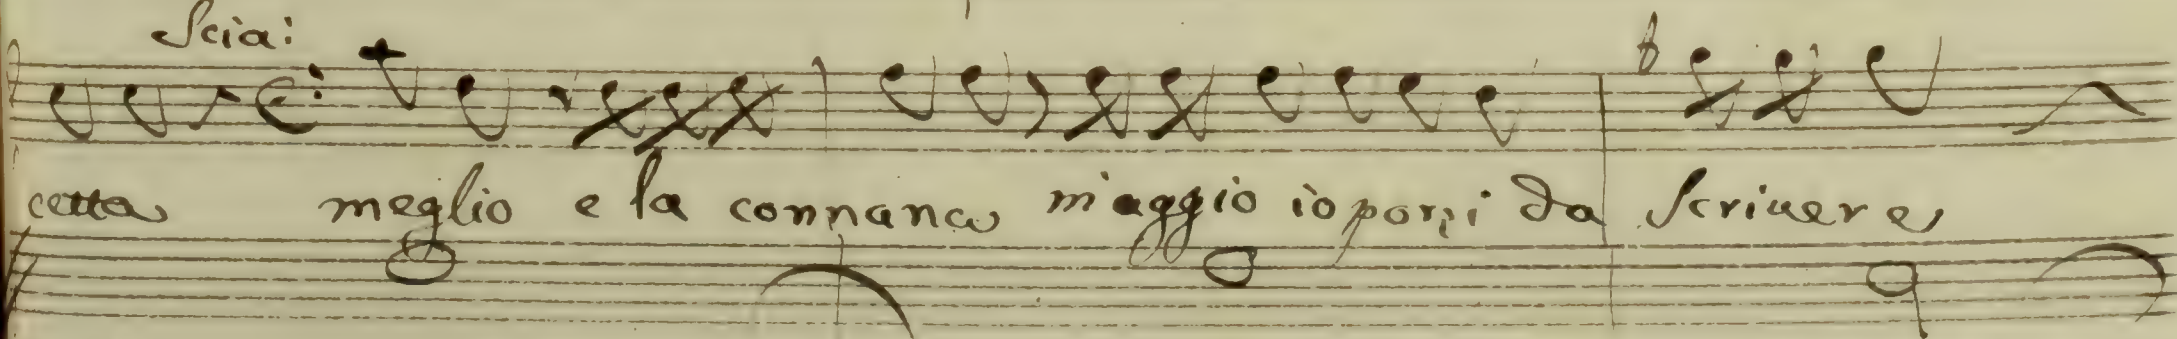 Scia:
cetta meglio e la connana m'aggio io porzi da scrivere